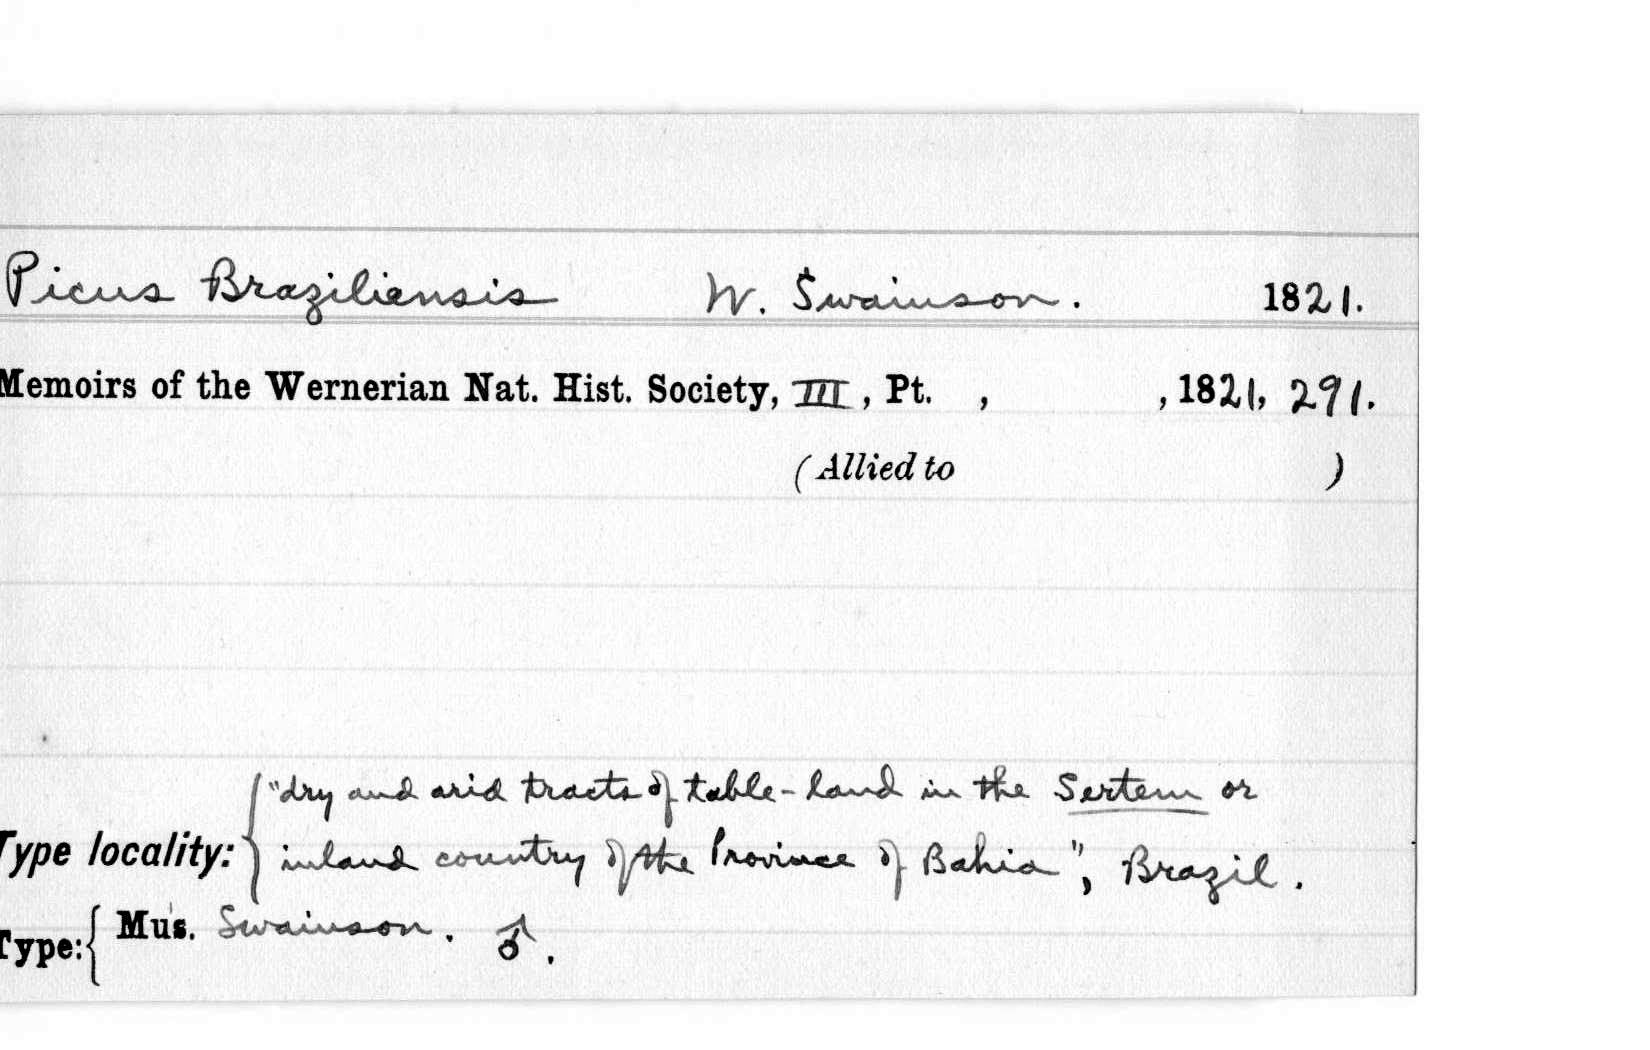 Picus Braziliensis W. Swainson. 1821.
Memoirs of the Wernerian Nat. Hist. Society, III, Pt. , , 1821, 291.
(Allied to )
"dry and arid tracts of table-land in the Sertem or
Type locality: inland country of the Province of Bahia", Brazil.
Type: Mus. Swainson. ♂.